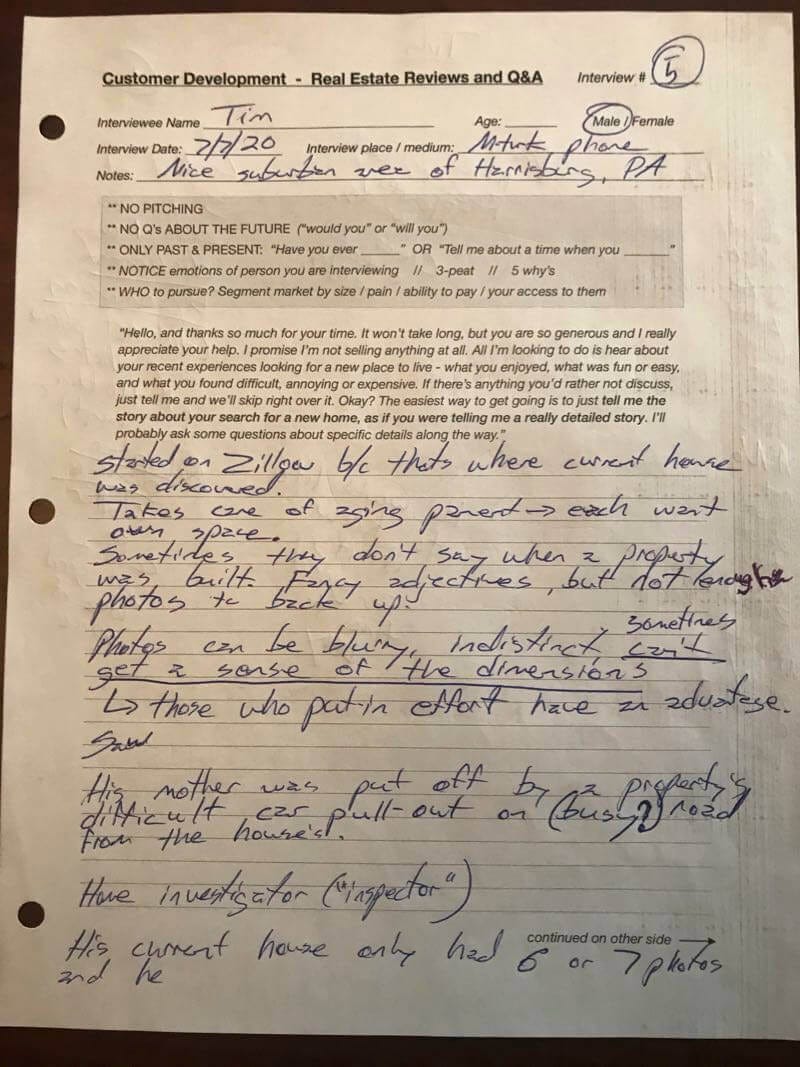 Customer Development - Real Estate Reviews and Q&A Interview # 5
Interviewee Name Tim Age: Male / Female
Interview Date: 7/7/20 Interview place / medium: M-turk phone
Notes: Nice suburban area of Harrisburg, PA
** NO PITCHING
** NO Q's ABOUT THE FUTURE ("would you" or "will you")
** ONLY PAST & PRESENT: "Have you ever ______" OR "Tell me about a time when you ______"
** NOTICE emotions of person you are interviewing // 3-peat // 5 why's
** WHO to pursue? Segment market by size / pain / ability to pay / your access to them
"Hello, and thanks so much for your time. It won't take long, but you are so generous and I really
appreciate your help. I promise I'm not selling anything at all. All I'm looking to do is hear about
your recent experiences looking for a new place to live - what you enjoyed, what was fun or easy,
and what you found difficult, annoying or expensive. If there's anything you'd rather not discuss,
just tell me and we'll skip right over it. Okay? The easiest way to get going is to just tell me the
story about your search for a new home, as if you were telling me a really detailed story. I'll
probably ask some questions about specific details along the way."
started on Zillow b/c thats where current house
was discovered.
Takes care of aging parent → each want
own space.
Sometimes they don't say when a property
was built. Fancy adjectives, but not enough
photos to back up.
Photos can be blurry, indistinct, sometimes can't
get a sense of the dimensions
↳ those who put in effort have an advantage.
Saw
His mother was put off by a property's
difficult car pull-out on (busy?) road
from the house's.
Home investigator ("inspector")
continued on other side →
His current house only had 6 or 7 photos
and he